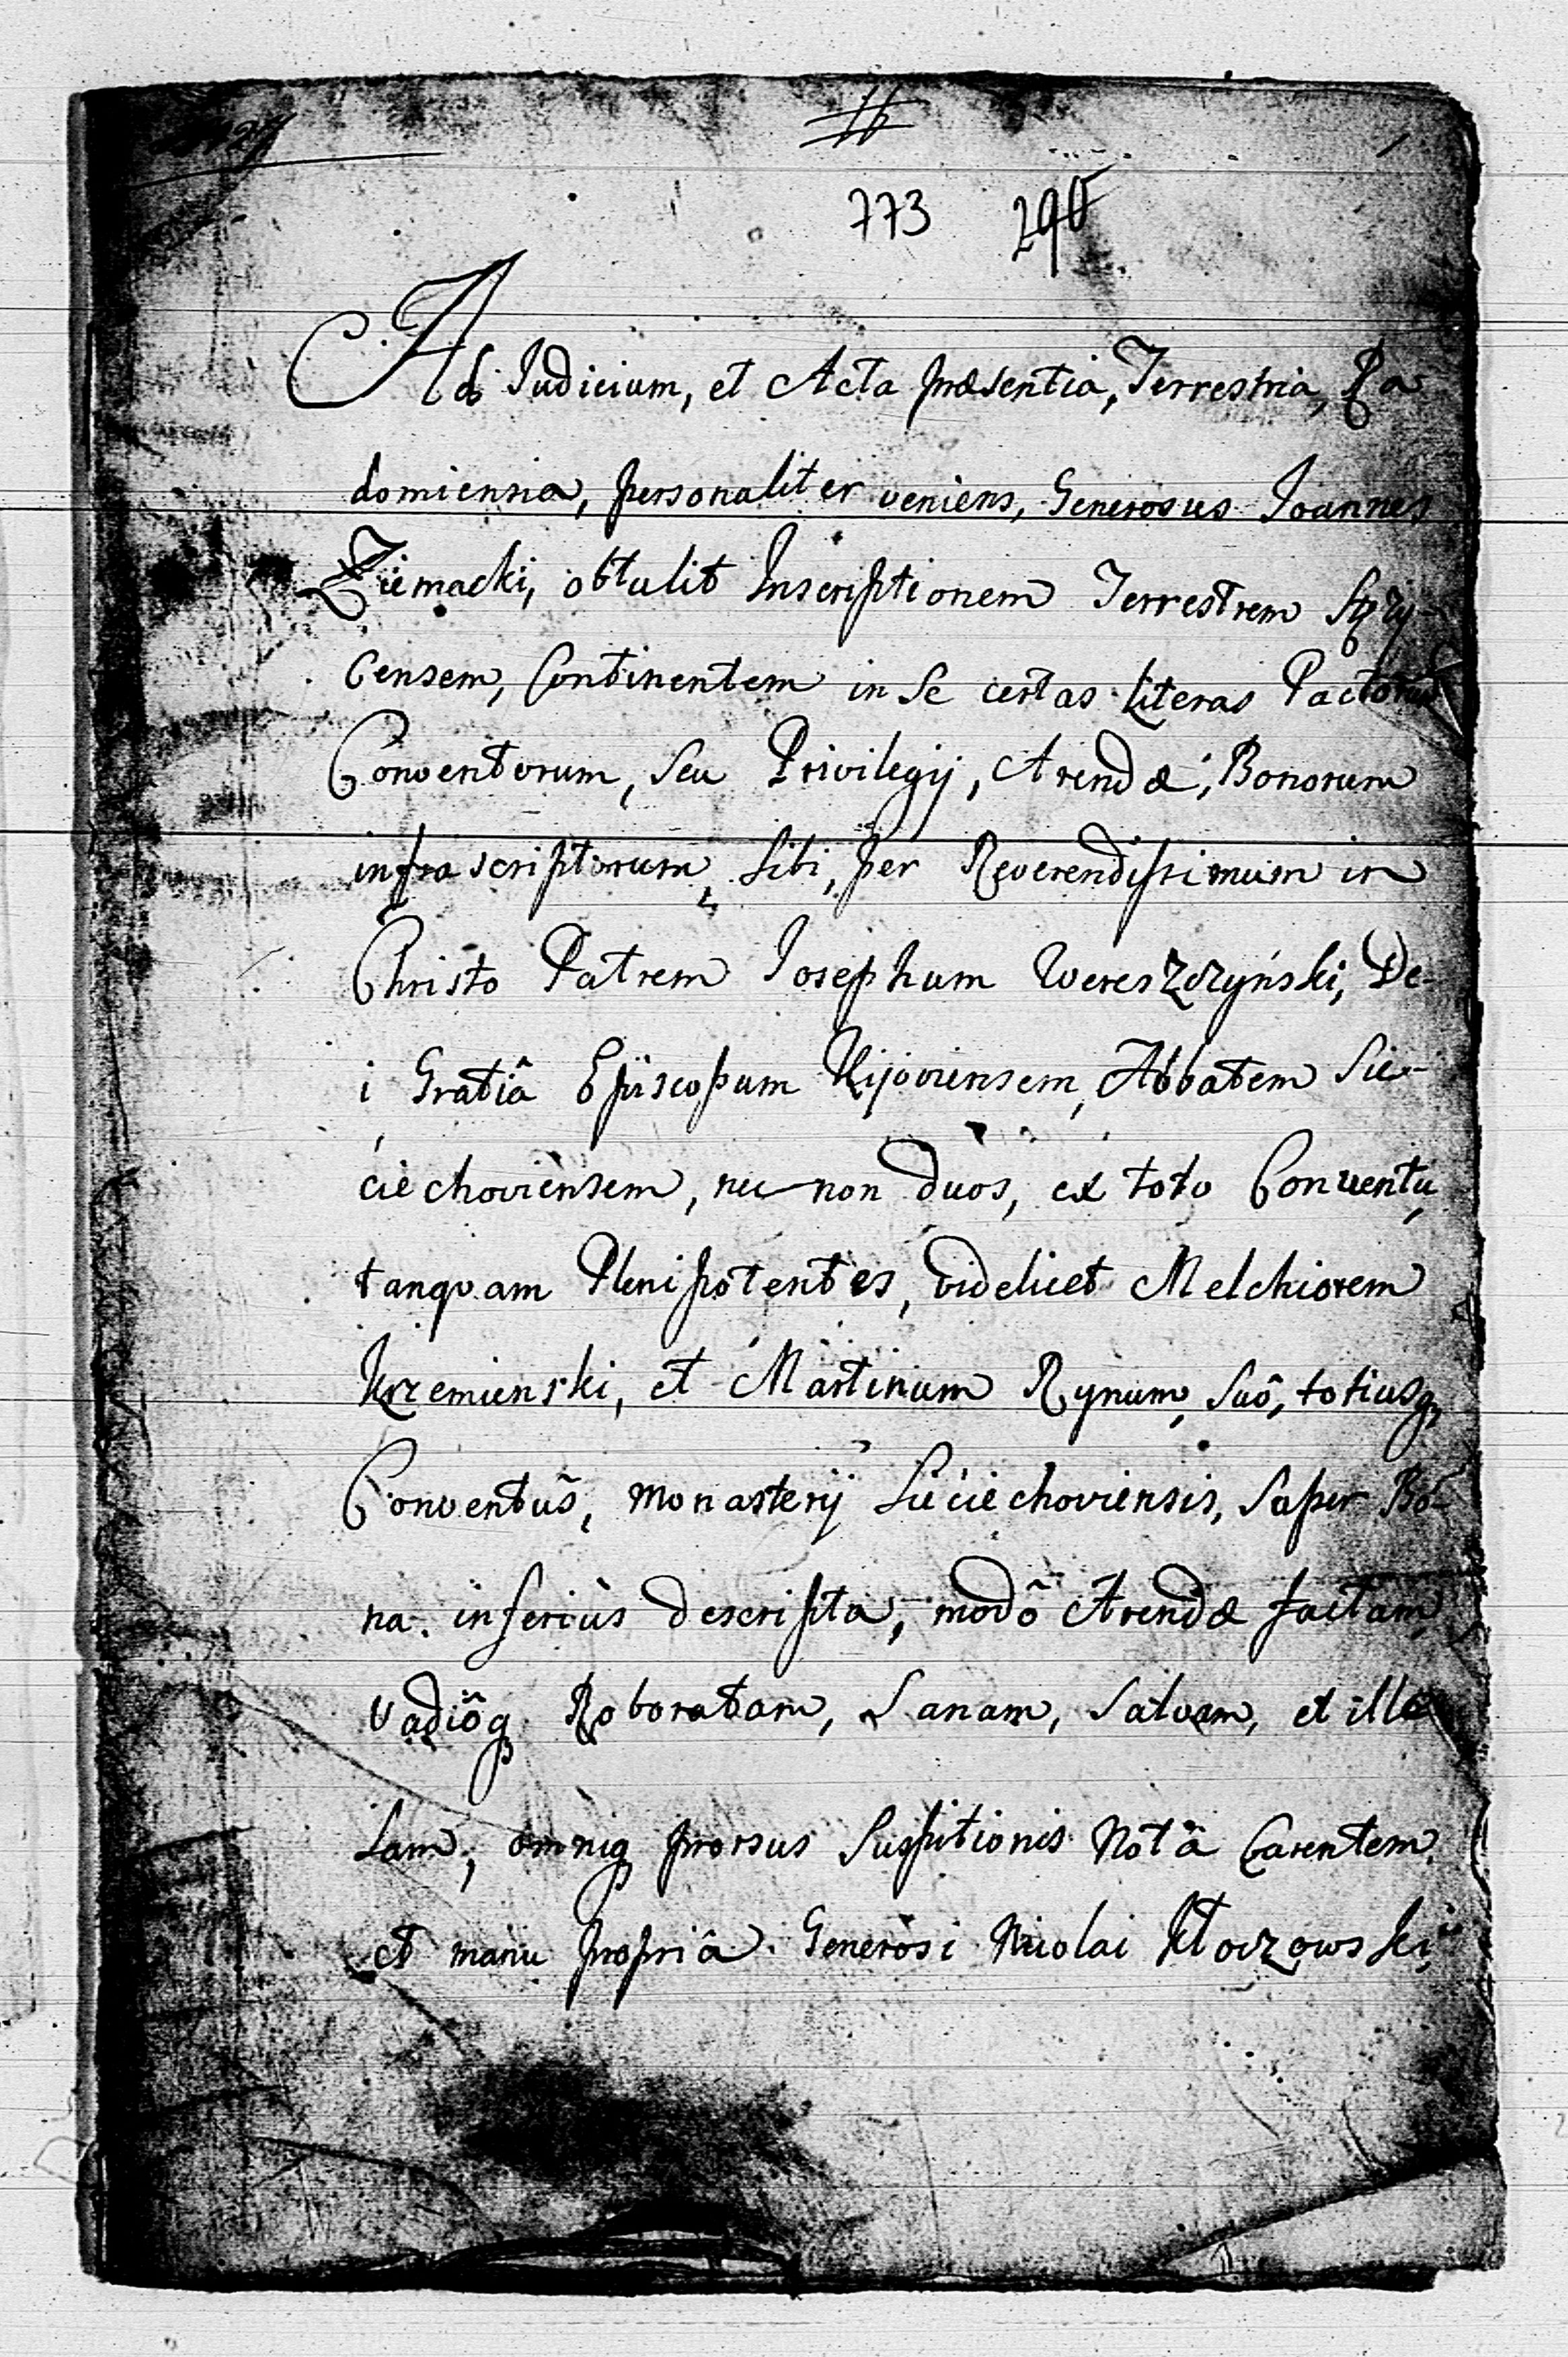 16
773 290
Ad Judicium, et Acta præsentia, Terrestria, Ra
domiensia, personaliter veniens, Generosus Joannes
Ziemacki, obtulit Inscriptionem Terrestrem
censem, Continentem in Se certas literas Pactorũ
Conventorum, seu Privilegij, Arendæ, Bonorum
infrascriptorum, sibi, per Reverendissimum in
Christo Patrem Josephum Wereszczyński, De-
i Gratiâ Episcopum Kijoviensem, Abbatem Sie-
ciechoviensem, nec non duos, ex toto Conventu,
tanquam Plenipotentes, videlicet Melchiorem
Krzemienski, et Martinum Rynum, suô, totiusq,
Conventûs, Monasterij Sieciechoviensis, Super Bo-
na. inferiùs descripta, modô Arendæ factam,
Vadiôq Roboratam, Sanam, Salvam, et illæ
sam, omniq prorsus Suspitionis Notâ Carentem,
et manu propriâ Generosi Nicolai Kłoczowski,